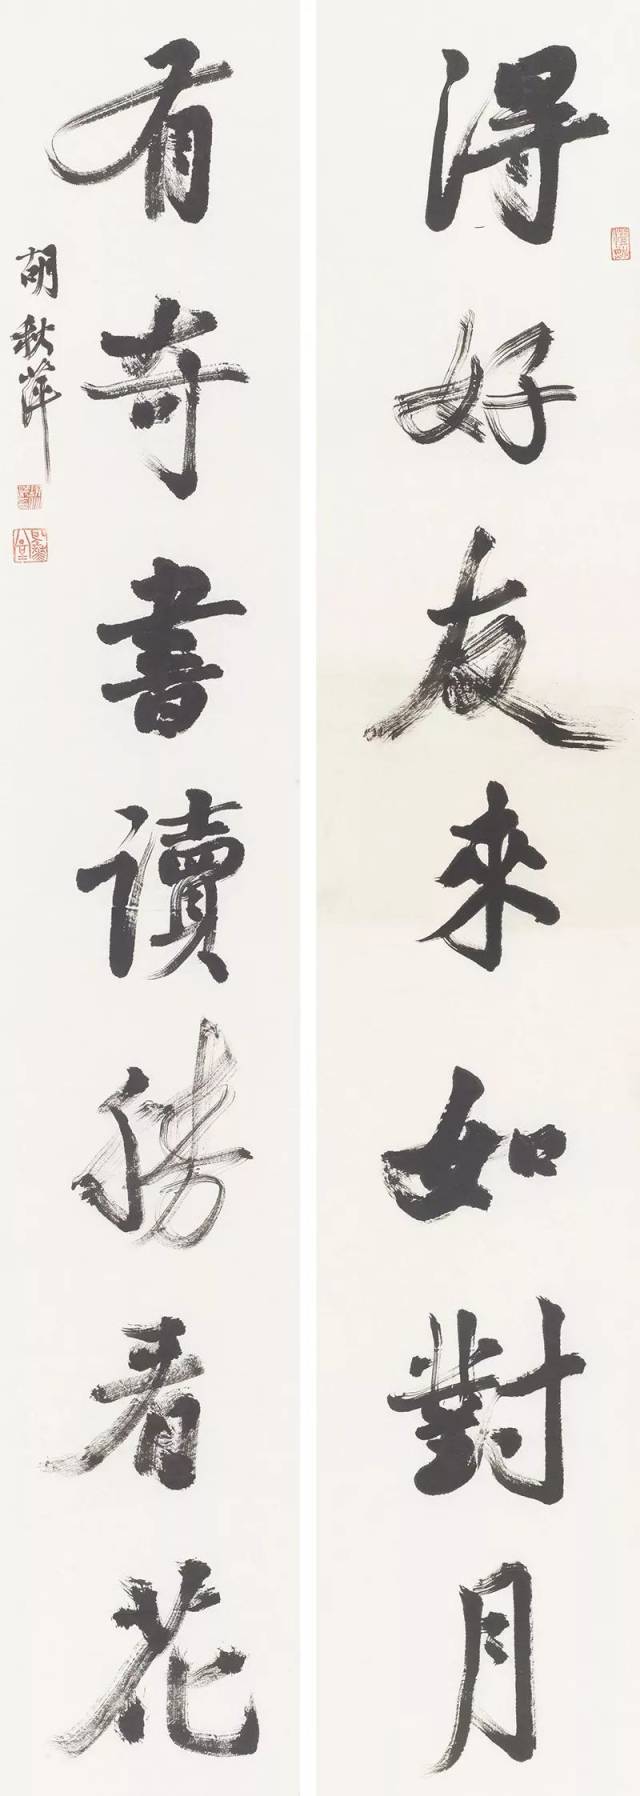 得好友來如對月
有奇書讀勝看花
胡秋萍